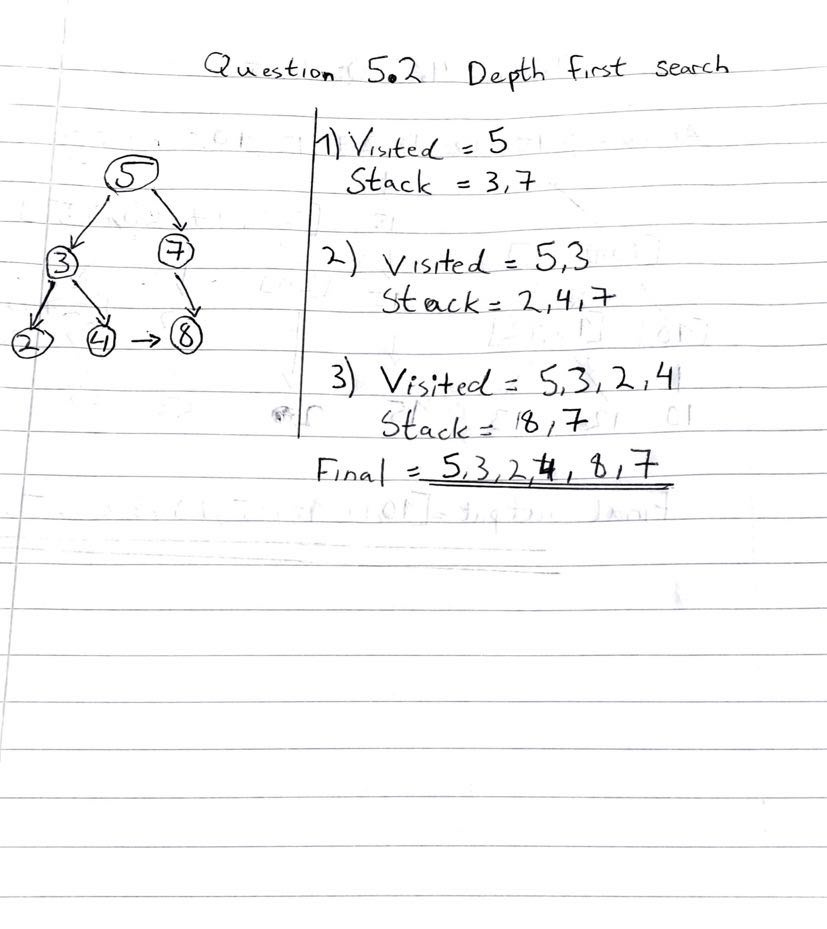 Question 5.2 Depth first search
5
3
7
2
4
8
1) Visited = 5
Stack = 3,7
2) Visited = 5,3
Stack = 2,4,7
3) Visited = 5,3,2,4
Stack = 8,7
Final = 5,3,2,4,8,7